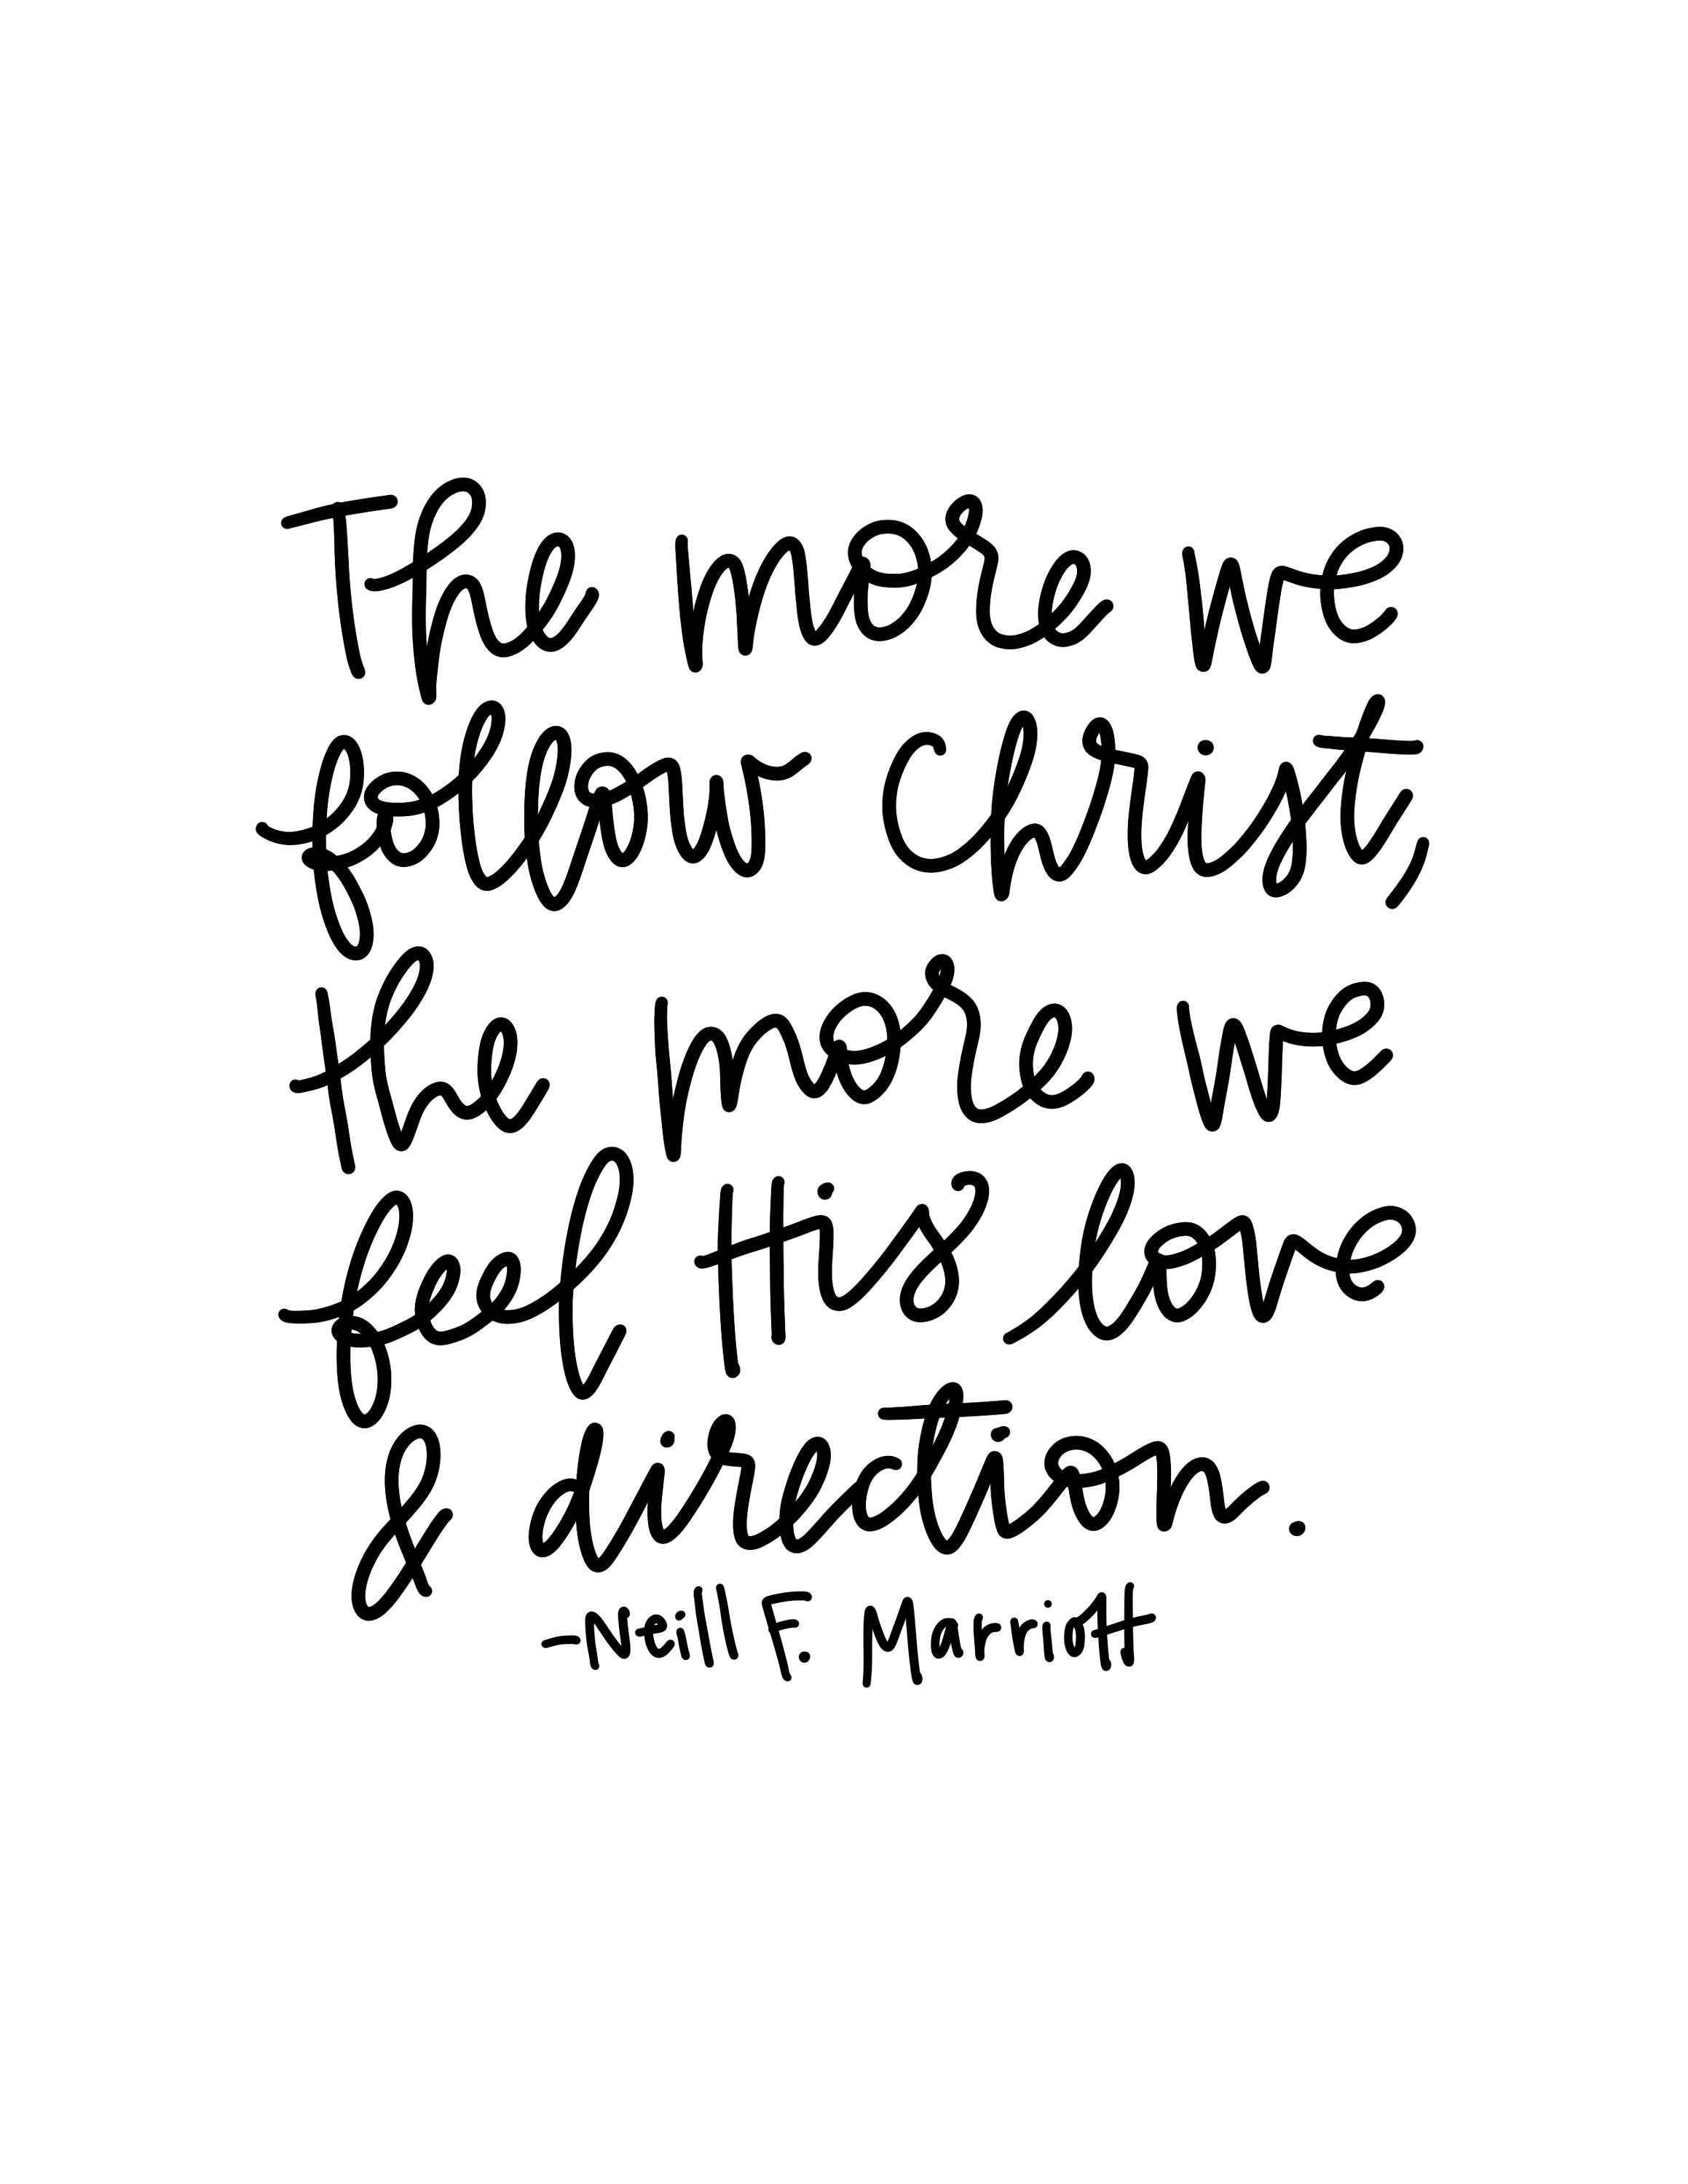 The more we
follow Christ,
the more we
feel His love
& direction.
-Neill F. Marriott